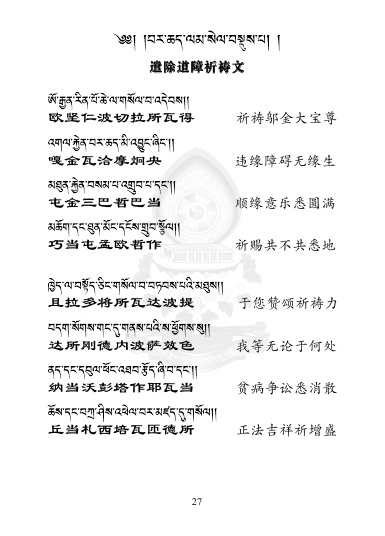 ༄༅། །བར་ཆད་ལམ་སེལ་བསྡུས་པ། །
遣除道障祈祷文
ཨོ་རྒྱན་རིན་པོ་ཆེ་ལ་གསོལ་བ་འདེབས།།
欧坚仁波切拉所瓦得 祈祷邬金大宝尊
འགལ་རྐྱེན་བར་ཆད་མི་འབྱུང་ཞིང་།།
嘎金瓦洽摩炯央 违缘障碍无缘生
མཐུན་རྐྱེན་བསམ་པ་འགྲུབ་པ་དང་།།
屯金三巴哲巴当 顺缘意乐悉圆满
མཆོག་དང་ཐུན་མོང་དངོས་གྲུབ་སྩོལ།།
巧当屯孟欧哲作 祈赐共不共悉地
ཁྱེད་ལ་བསྟོད་ཅིང་གསོལ་བ་བཏབས་པའི་མཐུས།།
且拉多将所瓦达波提 于您赞颂祈祷力
བདག་སོགས་གང་དུ་གནས་པའི་ས་ཕྱོགས་སུ།།
达所刚德内波萨效色 我等无论于何处
ནད་དང་དབུལ་ཕོང་འཐབ་རྩོད་ཞི་བ་དང་།།
纳当沃彭塔作耶瓦当 贫病争讼悉消散
ཆོས་དང་བཀྲ་ཤིས་འཕེལ་བར་མཛད་དུ་གསོལ།།
丘当札西培瓦匝德所 正法吉祥祈增盛
27